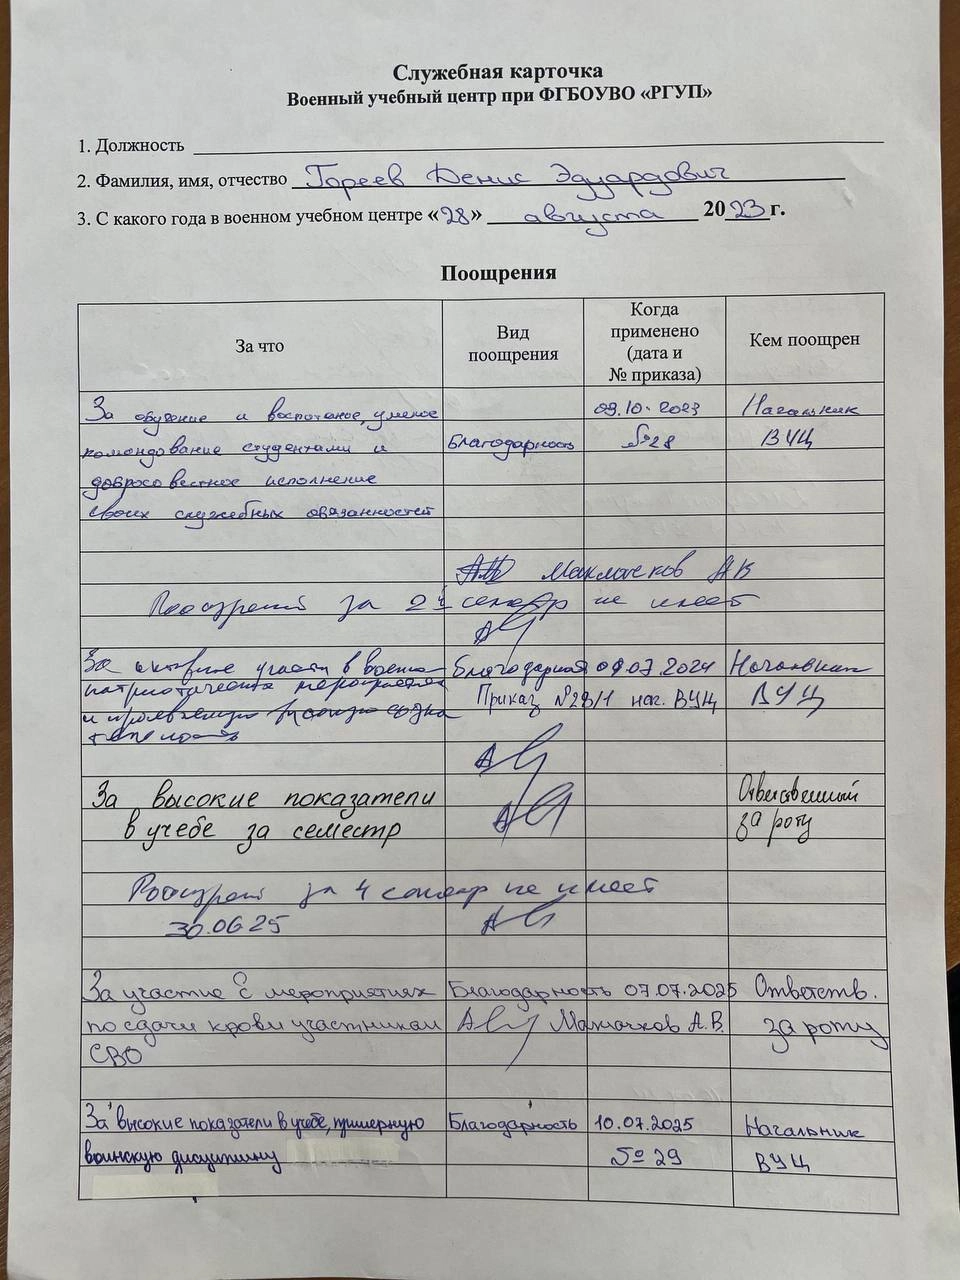 Служебная карточка
Военный учебный центр при ФГБОУВО «РГУП»
1. Должность
2. Фамилия, имя, отчество Гореев Денис Эдуардович
3. С какого года в военном учебном центре «28» августа 2023 г.
Поощрения
За что
Вид поощрения
Когда применено (дата и № приказа)
Кем поощрен
За обучение и воспитание, умелое 09.10.2023 Начальник
командование студентами и Благодарность №28 ВУЦ
добросовестное исполнение
своих служебных обязанностей
Маклачков АВ
Поощрений за 2й семестр не имеет
За активное участие в военно Благодарность 09.07.2024 Начальник
патриотических мероприятиях Приказ №28/1 нач. ВУЦ ВУЦ
и
За высокие показатели Ответственный
в учебе за семестр за роту
Поощрений за 4 семестр не имеет
30.06.25
За участие в мероприятиях Благодарность 07.07.2025 Ответств.
по сдачи крови участникам Маклачков А.В. за роту
СВО
За высокие показатели в учебе, примерную Благодарность 10.07.2025 Начальник
воинскую дисциплину № 29 ВУЦ